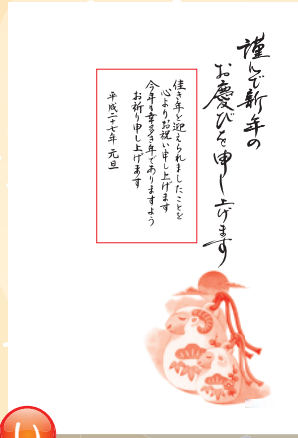 謹んで新年の
お慶びを申し上げます
佳き年を迎えられましたことを
心よりお祝い申し上げます
今年も幸多き年でありますよう
お祈り申し上げます
平成二十七年 元旦
い